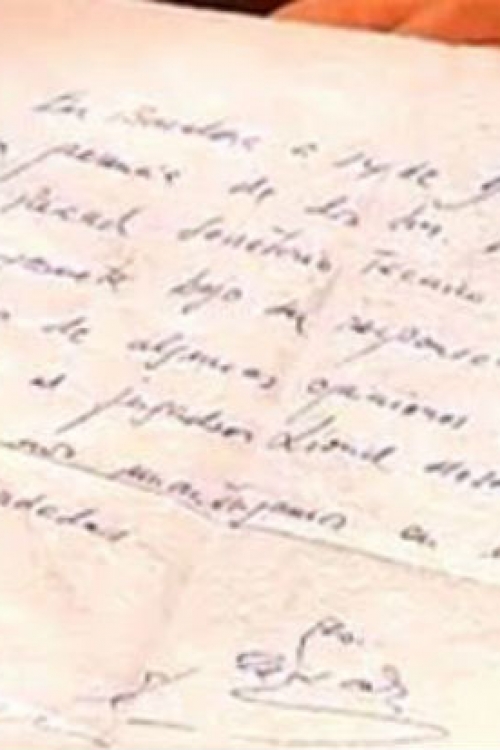 En Barcelona a 14 de
presencia de los Srs.
Rexach Secretario Técnico
bajo su
de algunas opiniones
al jugador Lionel
nos mantengamos en